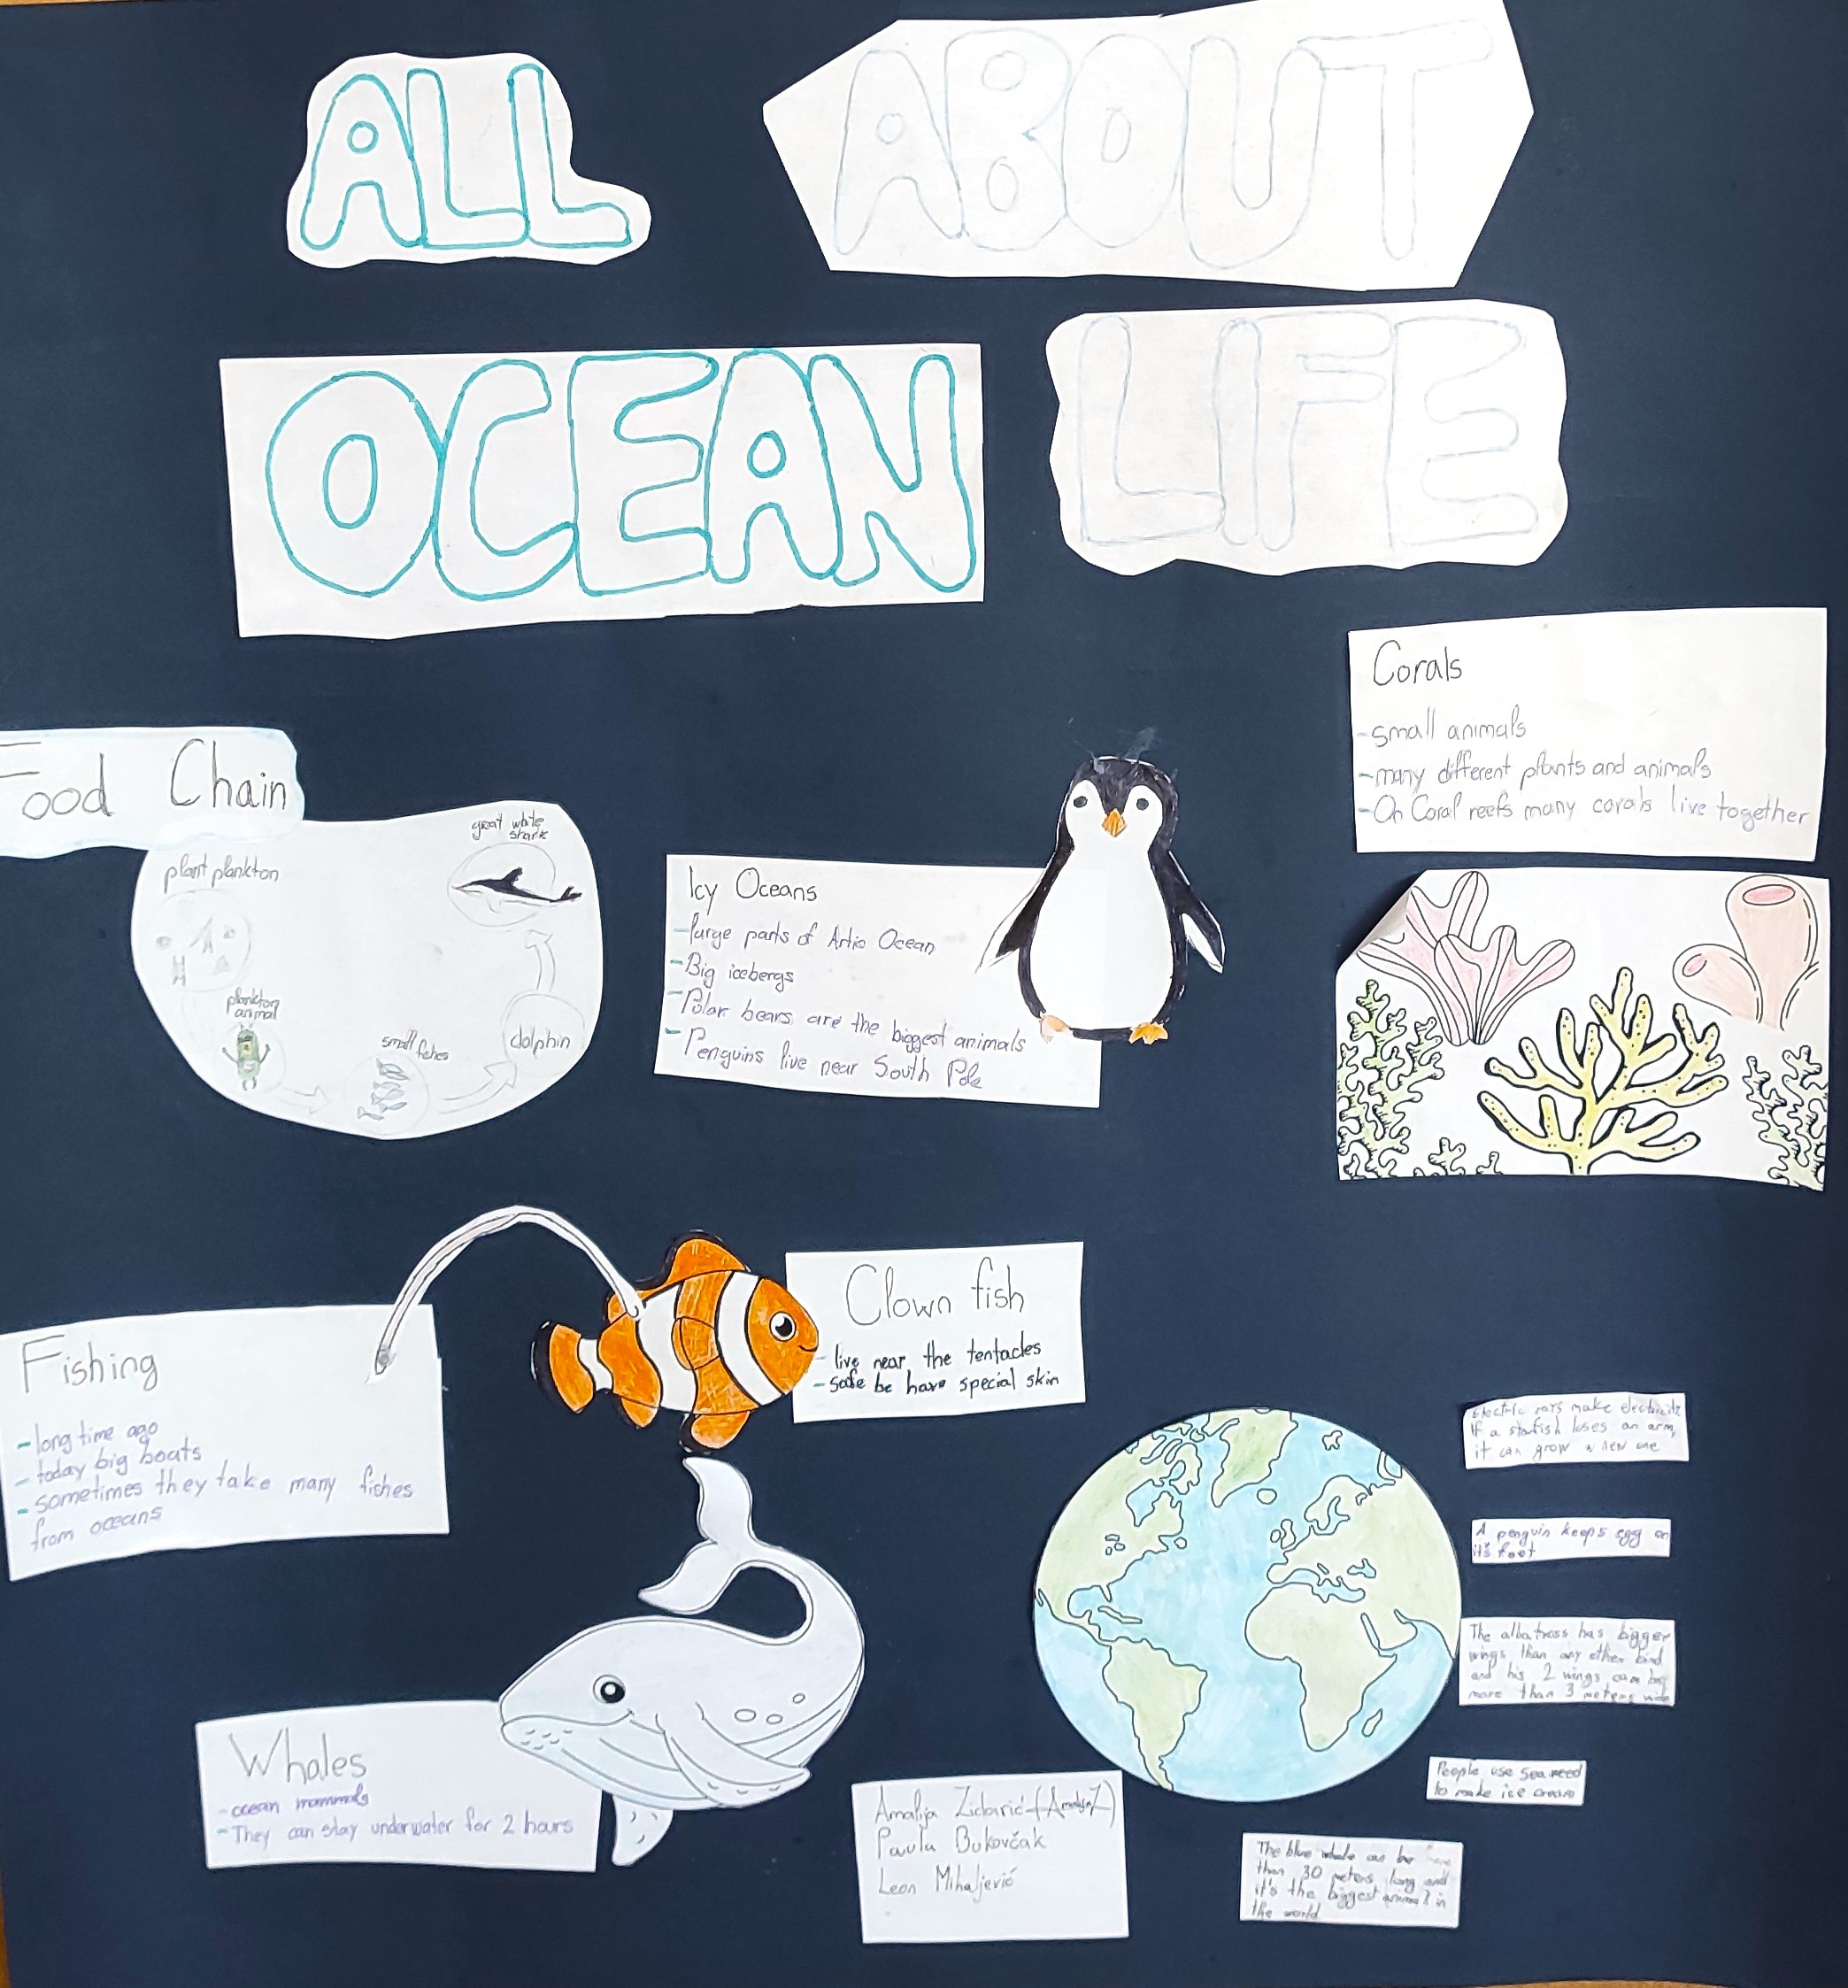 ALL ABOUT
OCEAN LIFE
Food Chain
plant plankton
plankton
animal
small fishes
dolphin
great white
shark
Icy Oceans
-large parts of Artic Ocean
-Big icebergs
-Polar bears are the biggest animals
-Penguins live near South Pole
Corals
-small animals
-many different plants and animals
-On Coral reefs many corals live together
Fishing
-long time ago
-today big boats
-sometimes they take many fishes
from oceans
Clown fish
-live near the tentacles
-safe be have special skin
Whales
-ocean mammals
-They can stay underwater for 2 hours
Amalija Zidarić
Paula Bukovčak
Leon Mihaljević
Electric rays make electricity
If a starfish loses an arm,
it can grow a new one
A penguin keeps egg on
it's foot
The albatross has bigger
wings than any other bird
and his 2 wings can be
more than 3 meters wide
People use sea weed
to make ice cream
The blue whale can be
than 30 meters long and
it's the biggest animal in
the world